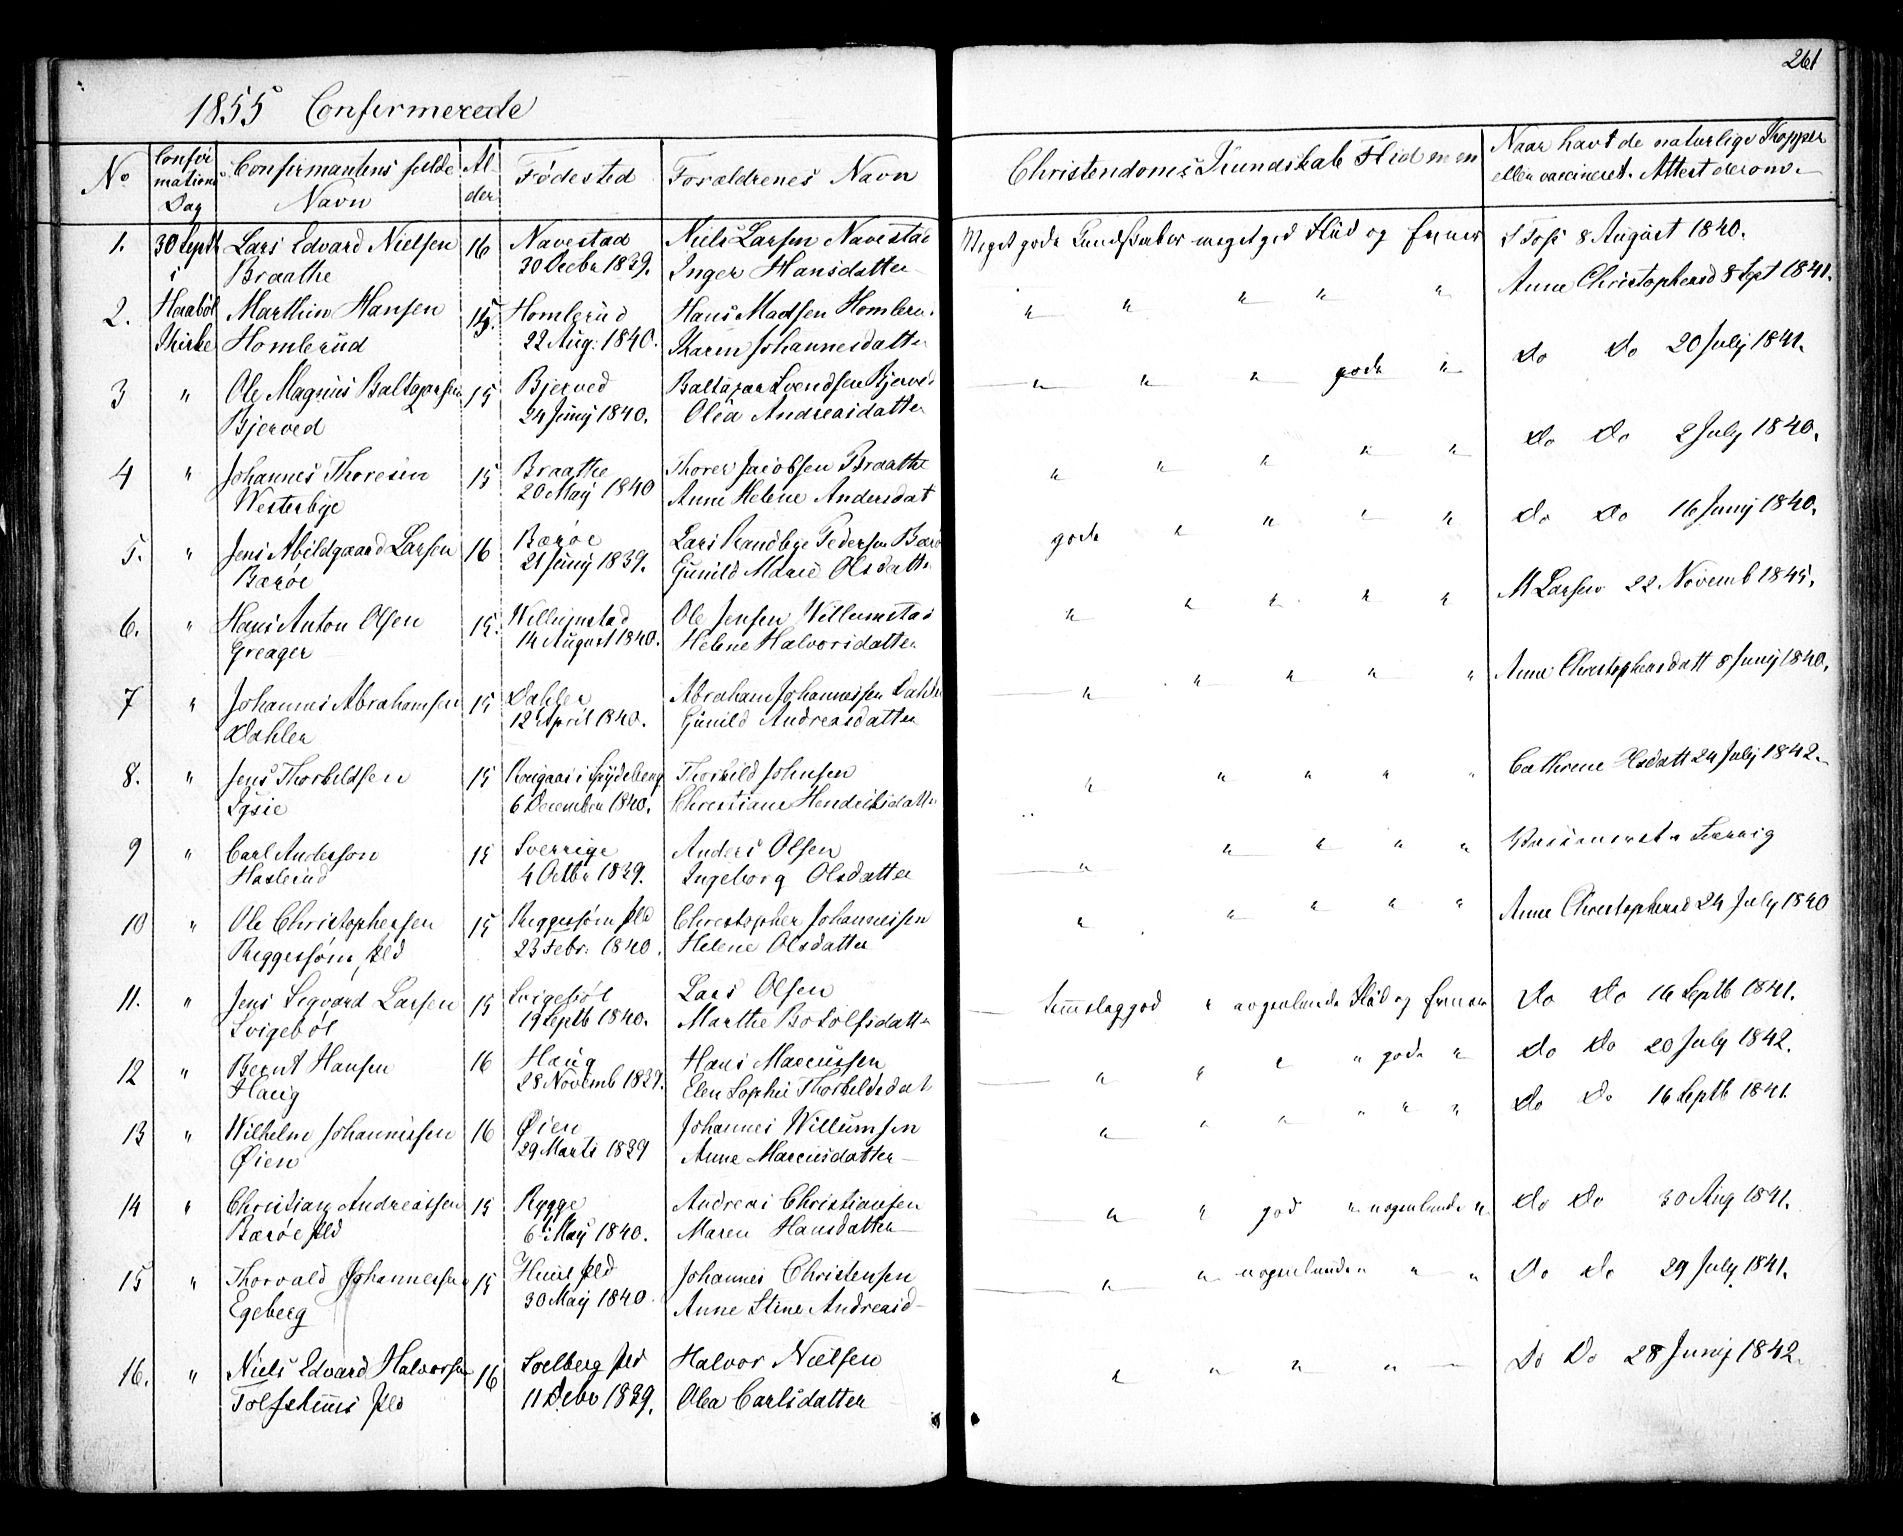 261
1855 Confirmerede
No Confirmations Dag Confirmantens fulde Navn Alder Fødested Forældrenes Navn Christendoms Kundskab Flid m m Naar havt de naturlige Kopper eller vaccineret. Attest derom
1. 30 Septb Lars Edvard Nielsen 16 Navestad Niels Larsen Navestad Meget gode Kundskaber meget god Fliid og 8 August 1840.
i Braathe 30 Decbr 1839. Inger Hansdatter
2. Haabøl Marthin Hansen 15. Homlerud Hans Madsen Homleru " " " " " Anne Christophersd 8 Sept 1841.
Kirke Homlerud 22 Aug: 1840. Karen Johannesdatter
3 " Ole Magnus Baltazarsen 15 Bjerved Baltazar Svendsen Bjerved " " " gode " Do Do 20 July 1841.
Bjerved 24 Juny 1840. Olea Andreasdatter
4 " Johannes Thoresen 15 Braathe Thorer Jacobsen Braathe " " " " " Do Do 2 July 1840.
Westerbye 20 May 1840 Anne Helene Andersdat
5. " Jens Abildgaard Larsen 16 Bærøe Lars Randbye Pedersen Bærø gode " " " " Do Do 16 Juny 1840.
Bærøe 21 Juny 1839. Gunild Marie Olsdatter
6. " Hans Anton Olsen 15. Willumstad Ole Jensen Willumstad " " " " " M Larsen 22 Novemb 1845.
Greager 14 August 1840. Helene Halvorsdatter
7 " Johannes Abrahamsen 15 Dahler Abraham Johannessen Dahle " " " " " Anne Christophersdatt 8 Juny 1840.
Dahler 12 April 1840. Gunild Andreasdatter
8. " Jens Thorkildsen 15 i Spydeberg Thorkild Johnsen " " " " " Cathrine Olsdatt 24 July 1842.
Lysie 6 December 1840. Christiane Hendriksdatte
9 " Carl Anderson 15 Sverrige Anders Olsen " " " " " Vaccineret i Sverrig
Haslerud 4 Octbr 1839. Ingeborg Olsdatter
10 " Ole Christophersen 15 Ryggesørm Pld Christopher Johannessen " " " " " Anne Christophersd 24 July 1840
Ryggesørm Pld 23 Febr: 1840. Helene Olsdatter
11. " Jens Sigvard Larsen 15 Svigebøl Lars Olsen temmelig god " nogenlunde Fliid og Do Do 16 Septb 1841.
Svigebøl 19 Septb 1840. Marthe Botolfsdatte
12 " Bernt Hansen 16 Haug Hans Marcussen " " " " gode " Do Do 20 July 1842.
Haug 28 Novemb 1839. Elen Sophie Thorkildsdat
13 " Wilhelm Johannissen 16 Øien Johannes Willumsen " " " " " " Do Do 16 Septb 1841.
Øien 29 Marts 1839 Anne Marcusdatter
14 " Christian Andreassen 15 Rygge Andreas Christiansen " " god " nogenlunde " Do Do 30 Aug 1841.
Bærøe Pld 6 May 1840. Maren Hansdatter
15 " Thorvald Johannessen 15 Pld Johannes Christensen " " nogenlunde " " Do Do 29 July 1841.
Egeberg 30 May 1840. Anne Stine Andreasd
16. " Niels Edvard Halvorsen 16 Soelberg Pld Halvor Nielsen " " " " Do Do 28 Juny 1842.
Pld 11 Debr 1839. Olea Carlsdatter